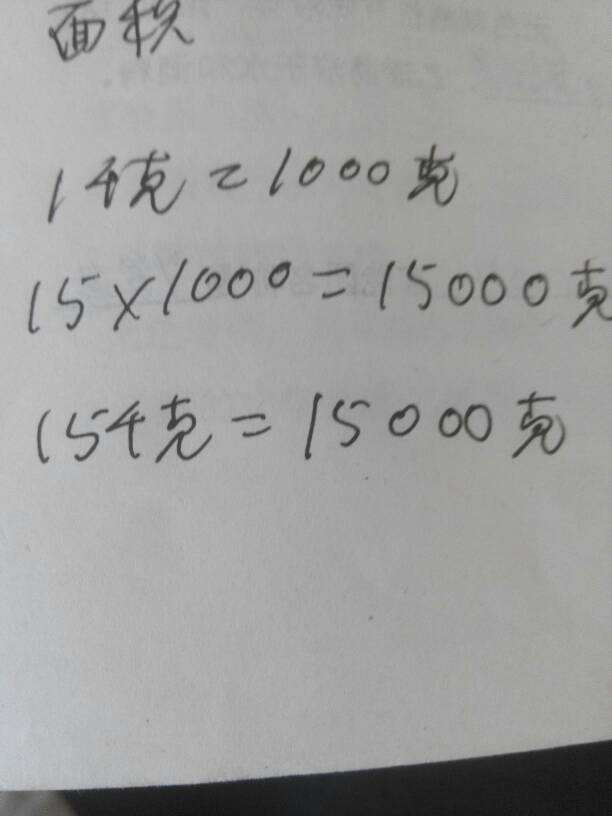 面积
1千克=1000克
15×1000=15000克
15千克=15000克